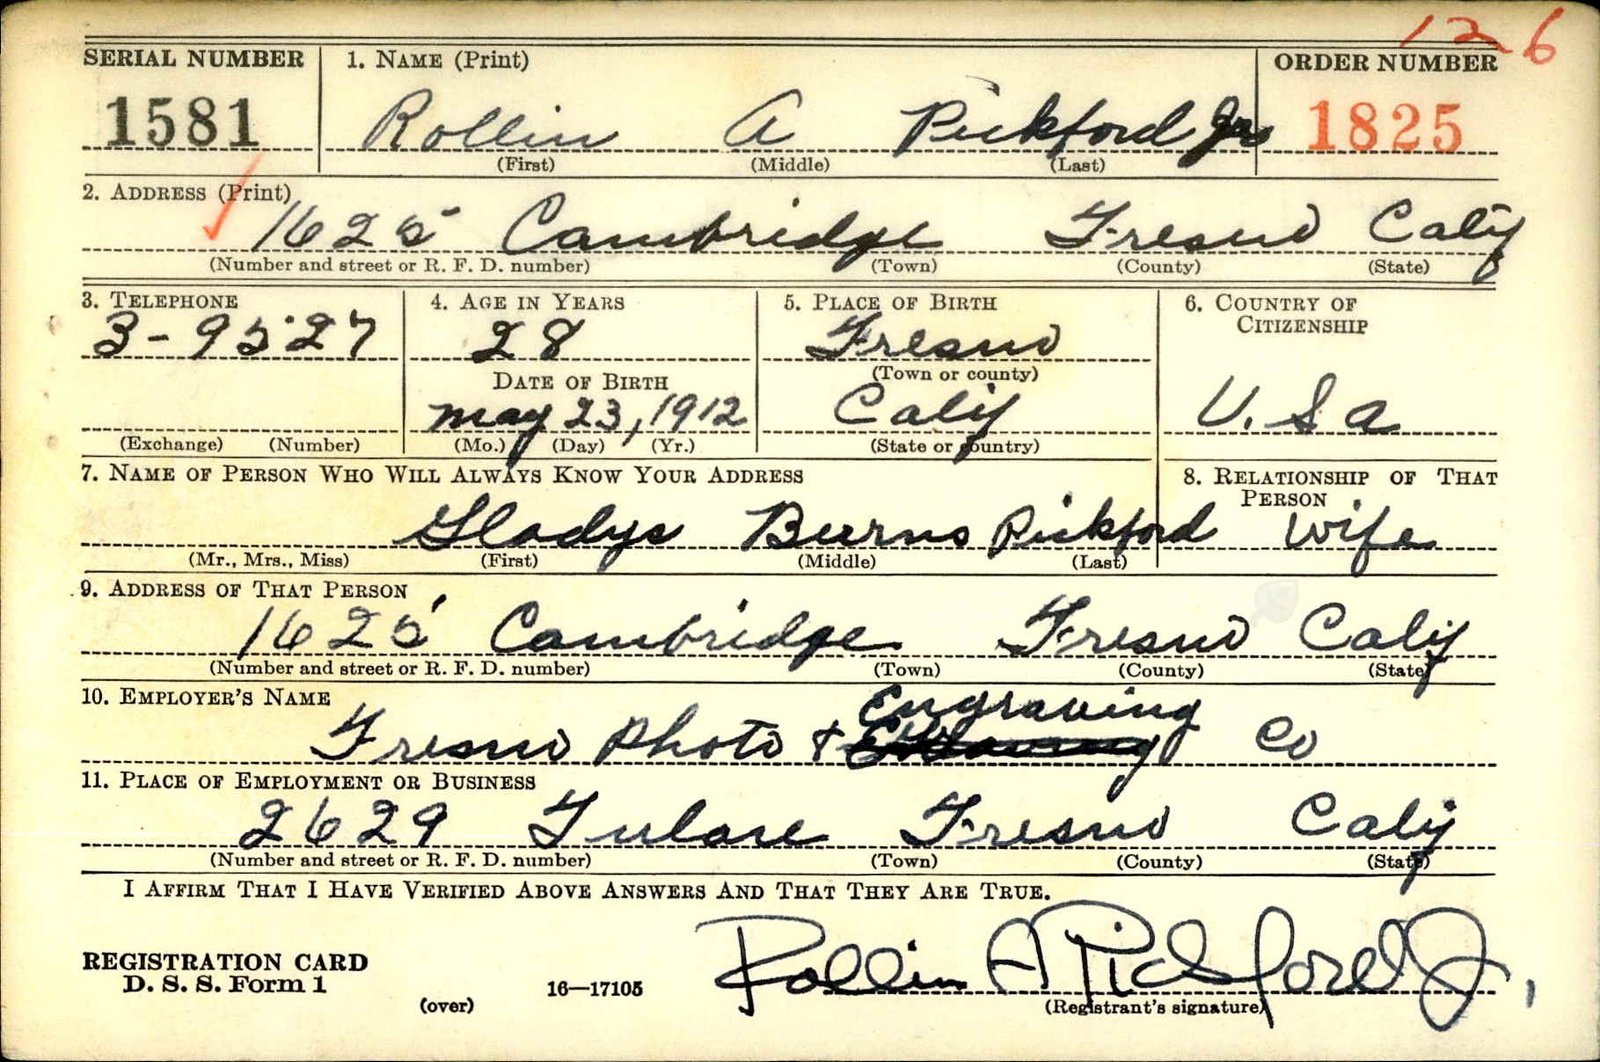 126
SERIAL NUMBER 1. NAME (Print) ORDER NUMBER
1581 Rollin A Pickford Jr 1825
(First) (Middle) (Last)
2. ADDRESS (Print)
1625 Cambridge Fresno Calif
(Number and street or R. F. D. number) (Town) (County) (State)
3. TELEPHONE 4. AGE IN YEARS 5. PLACE OF BIRTH 6. COUNTRY OF
CITIZENSHIP
3-9527 28 Fresno
(Town or county)
DATE OF BIRTH
May 23, 1912 Calif U.S.A
(Exchange) (Number) (Mo.) (Day) (Yr.) (State or country)
7. NAME OF PERSON WHO WILL ALWAYS KNOW YOUR ADDRESS 8. RELATIONSHIP OF THAT
PERSON
Gladys Burns Pickford wife
(Mr., Mrs., Miss) (First) (Middle) (Last)
9. ADDRESS OF THAT PERSON
1625 Cambridge Fresno Calif
(Number and street or R. F. D. number) (Town) (County) (State)
10. EMPLOYER'S NAME
Engraving
Fresno Photo & Co
11. PLACE OF EMPLOYMENT OR BUSINESS
2629 Tulare Fresno Calif
(Number and street or R. F. D. number) (Town) (County) (State)
I AFFIRM THAT I HAVE VERIFIED ABOVE ANSWERS AND THAT THEY ARE TRUE.
REGISTRATION CARD
D. S. S. Form 1
(over) 16—17105
Rollin A Pickford Jr.
(Registrant's signature)